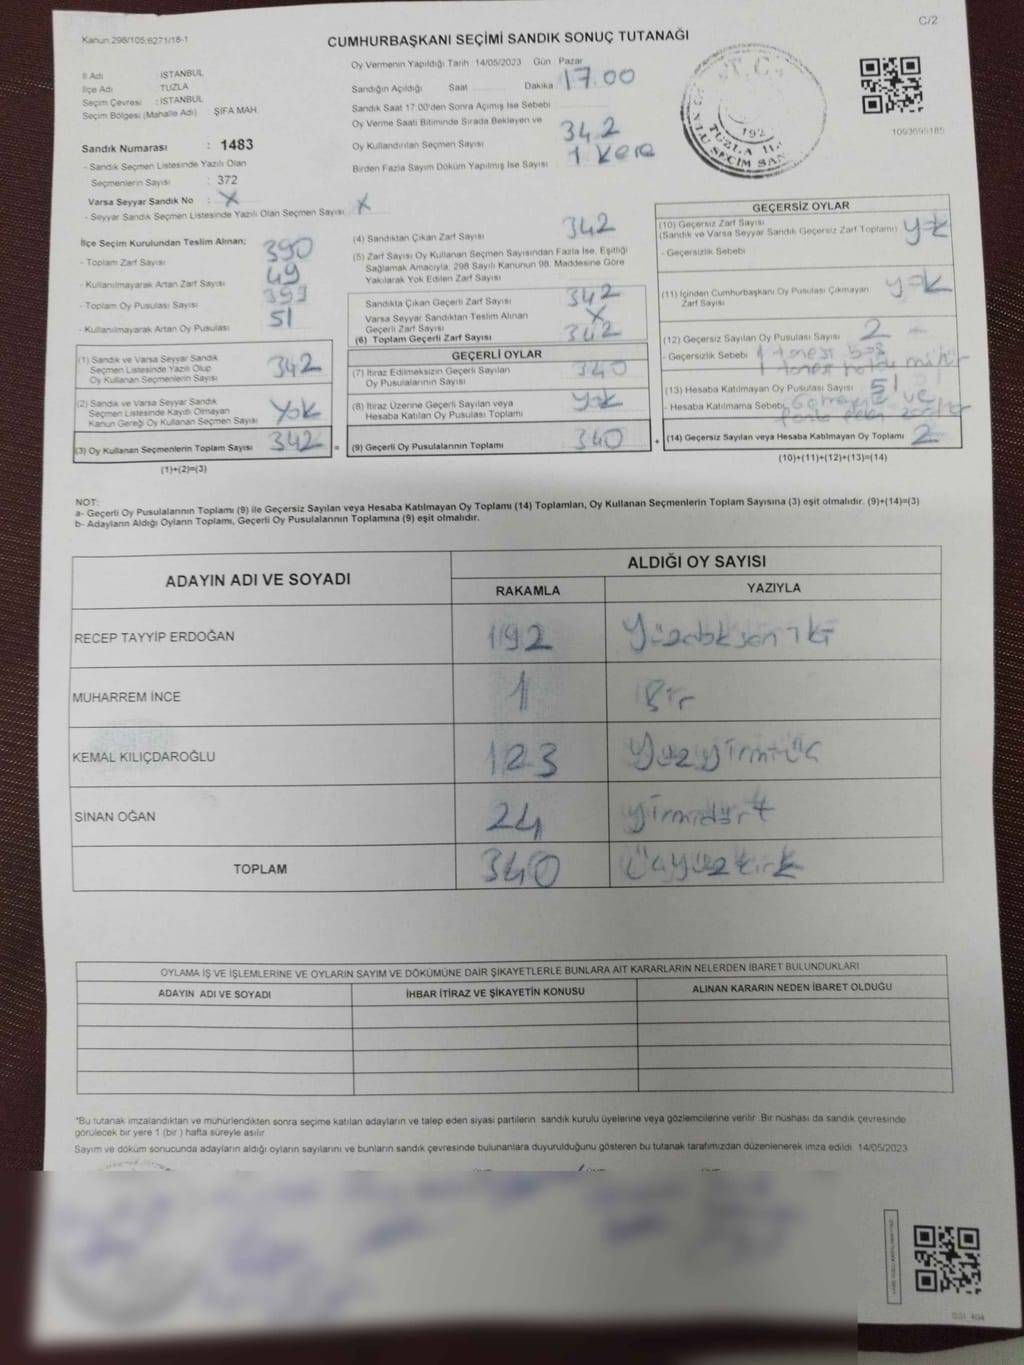 C/2
Kanun 298/105;6271/18-1
CUMHURBAŞKANI SEÇİMİ SANDIK SONUÇ TUTANAĞI
İl Adı İSTANBUL
İlçe Adı TUZLA
Seçim Çevresi : İSTANBUL
Seçim Bölgesi (Mahalle Adı) : ŞİFA MAH.
Sandık Numarası : 1483
- Sandık Seçmen Listesinde Yazılı Olan
Seçmenlerin Sayısı : 372
Varsa Seyyar Sandık No : X
- Seyyar Sandık Seçmen Listesinde Yazılı Olan Seçmen Sayısı X
Oy Vermenin Yapıldığı Tarih 14/05/2023 Gün Pazar
Sandığın Açıldığı Saat Dakika 17.00
Sandık Saat 17.00'den Sonra Açılmış İse Sebebi
Oy Verme Saati Bitiminde Sırada Bekleyen ve
Oy Kullandırılan Seçmen Sayısı 342
Birden Fazla Sayım Döküm Yapılmış İse Sayısı 1 kere
T.C.
TUZLA İL
SEÇİM SAN
192
1093695185
İlçe Seçim Kurulundan Teslim Alınan;
- Toplam Zarf Sayısı 390
- Kullanılmayarak Artan Zarf Sayısı 49
- Toplam Oy Pusulası Sayısı 399
- Kullanılmayarak Artan Oy Pusulası 51
(1) Sandık ve Varsa Seyyar Sandık
Seçmen Listesinde Yazılı Olup
Oy Kullanan Seçmenlerin Sayısı 342
(2) Sandık ve Varsa Seyyar Sandık
Seçmen Listesinde Kayıtlı Olmayan
Kanun Gereği Oy Kullanan Seçmen Sayısı Yok
(3) Oy Kullanan Seçmenlerin Toplam Sayısı 342 =
(1)+(2)=(3)
(4) Sandıktan Çıkan Zarf Sayısı 342
(5) Zarf Sayısı Oy Kullanan Seçmen Sayısından Fazla İse, Eşitliği
Sağlamak Amacıyla, 298 Sayılı Kanunun 98. Maddesine Göre
Yakılarak Yok Edilen Zarf Sayısı
Sandıkta Çıkan Geçerli Zarf Sayısı 342
Varsa Seyyar Sandıktan Teslim Alınan
Geçerli Zarf Sayısı X
(6) Toplam Geçerli Zarf Sayısı 342
GEÇERLİ OYLAR
(7) İtiraz Edilmeksizin Geçerli Sayılan
Oy Pusulalarının Sayısı 340
(8) İtiraz Üzerine Geçerli Sayılan veya
Hesaba Katılan Oy Pusulası Toplamı yok
(9) Geçerli Oy Pusulalarının Toplamı 340 +
GEÇERSİZ OYLAR
(10) Geçersiz Zarf Sayısı
(Sandık ve Varsa Seyyar Sandık Geçersiz Zarf Toplamı) yok
- Geçersizlik Sebebi
(11) İçinden Cumhurbaşkanı Oy Pusulası Çıkmayan
Zarf Sayısı yok
(12) Geçersiz Sayılan Oy Pusulası Sayısı 2
- Geçersizlik Sebebi 1 tanesi boş
1 tanesi mühür
(13) Hesaba Katılmayan Oy Pusulası Sayısı 51
- Hesaba Katılmama Sebebi ve
(14) Geçersiz Sayılan veya Hesaba Katılmayan Oy Toplamı 2
(10)+(11)+(12)+(13)=(14)
NOT:
a- Geçerli Oy Pusulaları Toplamı (9) ile Geçersiz Sayılan veya Hesaba Katılmayan Oy Toplamı (14) Toplamları, Oy Kullanan Seçmenlerin Toplam Sayısına (3) eşit olmalıdır. (9)+(14)=(3)
b- Adayların Aldığı Oyların Toplamı, Geçerli Oy Pusulalarının Toplamına (9) eşit olmalıdır.
ADAYIN ADI VE SOYADI
ALDIĞI OY SAYISI
RAKAMLA YAZIYLA
RECEP TAYYİP ERDOĞAN 192 Yüzdoksan iki
MUHARREM İNCE 1 Bir
KEMAL KILIÇDAROĞLU 123 Yüzyirmiüç
SİNAN OĞAN 24 yirmidört
TOPLAM 340 üçyüzkırk
OYLAMA İŞ VE İŞLEMLERİNE VE OYLARIN SAYIM VE DÖKÜMÜNE DAİR ŞİKAYETLERLE BUNLARA AİT KARARLARIN NELERDEN İBARET BULUNDUKLARI
ADAYIN ADI VE SOYADI İHBAR İTİRAZ VE ŞİKAYETİN KONUSU ALINAN KARARIN NEDEN İBARET OLDUĞU
*Bu tutanak imzalandıktan ve mühürlendikten sonra seçime katılan adayların ve talep eden siyasi partilerin sandık kurulu üyelerine veya gözlemcilerine verilir. Bir nüshası da sandık çevresinde
görülecek bir yere 1 (bir) hafta süreyle asılır
Sayım ve döküm sonucunda adayların aldığı oyların sayılarını ve bunların sandık çevresinde bulunanlara duyurulduğunu gösteren bu tutanak tarafımızdan düzenlenerek imza edildi 14/05/2023